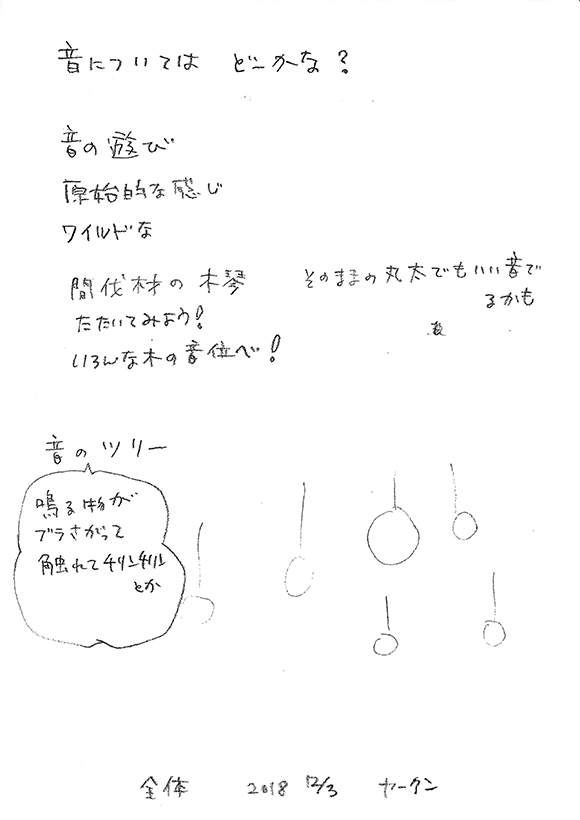 音については どーかな?
音の遊び
原始的な感じ
ワイルドな
間伐材の木琴
たたいてみよう!
いろんな木の音位べ!
そのままの丸太でもいい音で
るかも
音のツリー
鳴る物が
ブラさがって
触れてチリンチリン
とか
全体 2018 12/3 ヤータン